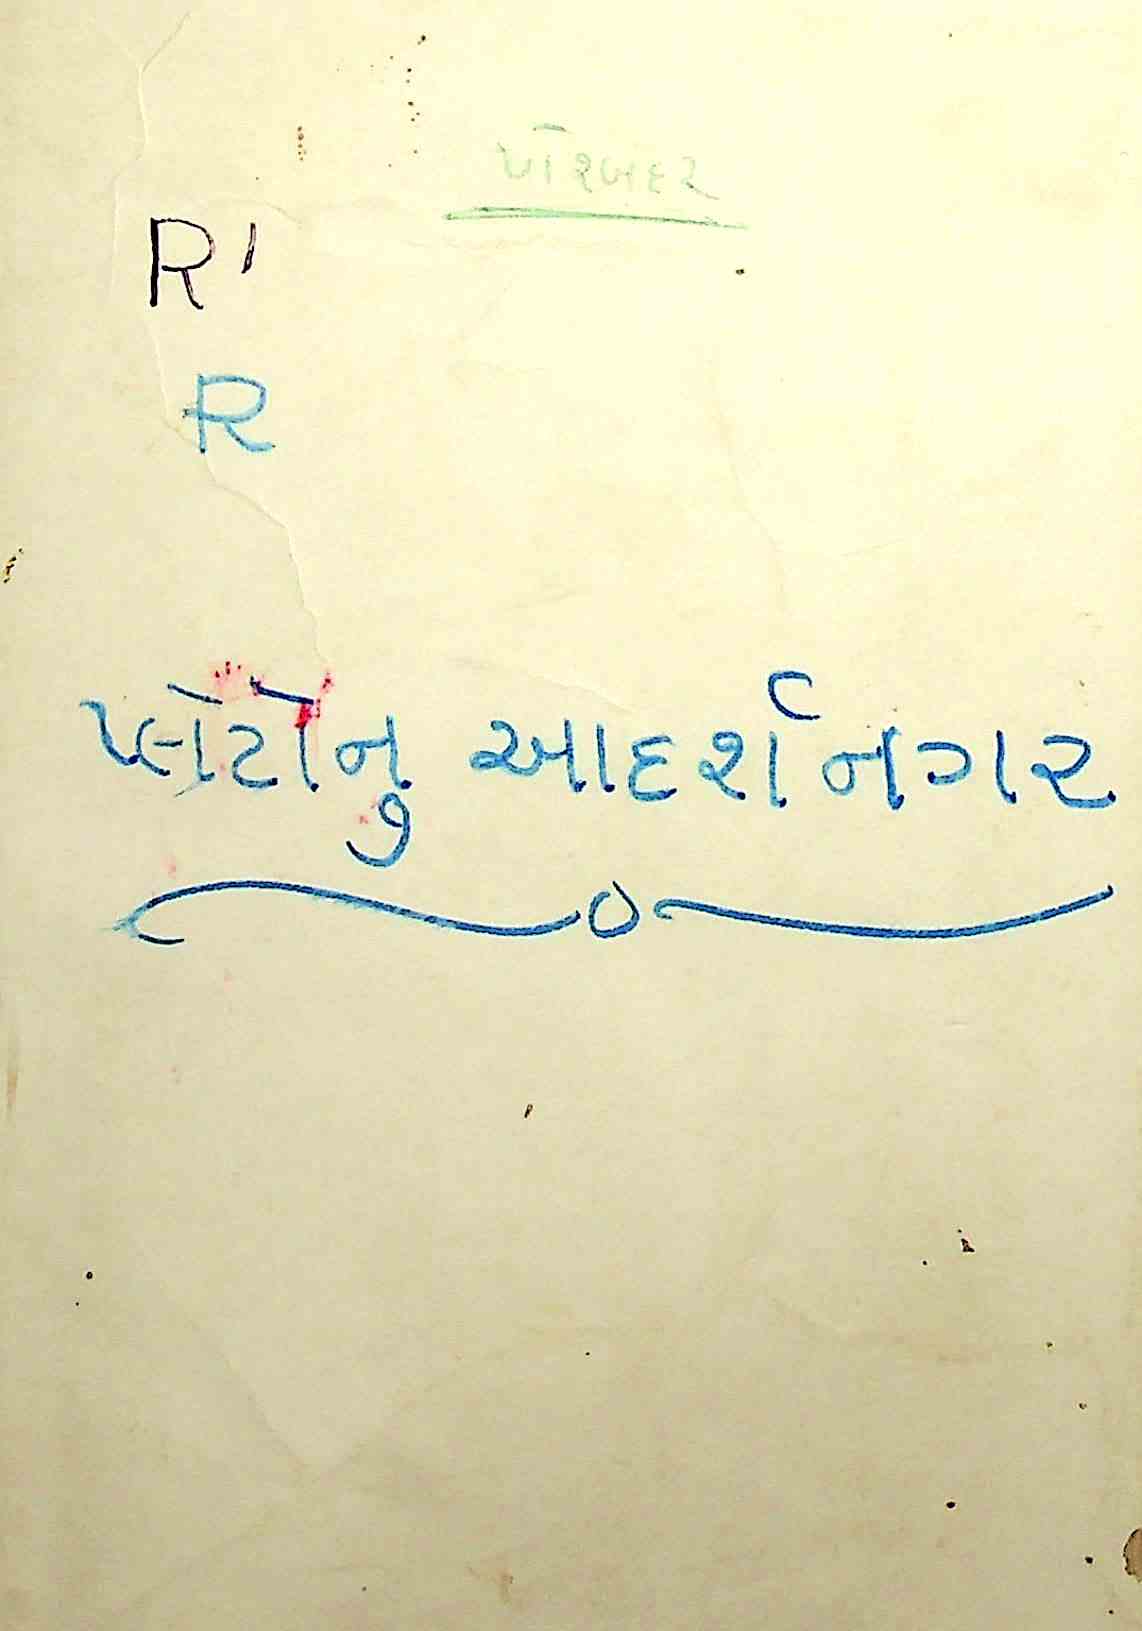 પોરબંદર
R'
R
પ્લેટોનુ આદર્શ નગર